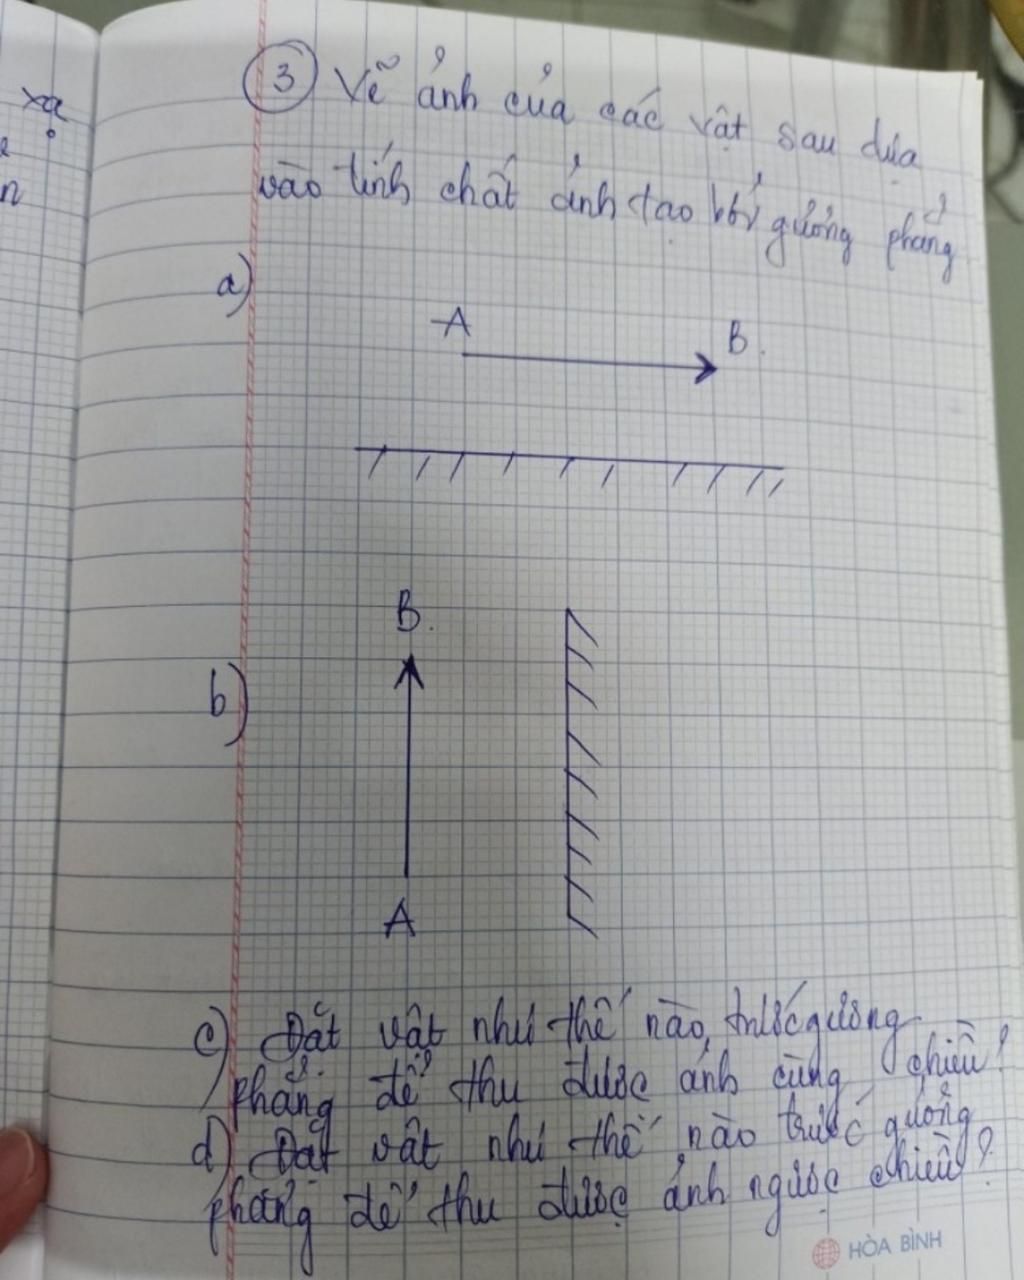 xạ
n
③ Vẽ ảnh của các vật sau dựa
vào tính chất ảnh tạo bởi gương phẳng
a)
A
B.
B.
b)
A
c) Đặt vật như thế nào, trước gương
phẳng để thu được ảnh cùng chiều?
d) Đặt vật như thế nào trước gương
phẳng để thu được ảnh ngược chiều?
HÒA BÌNH